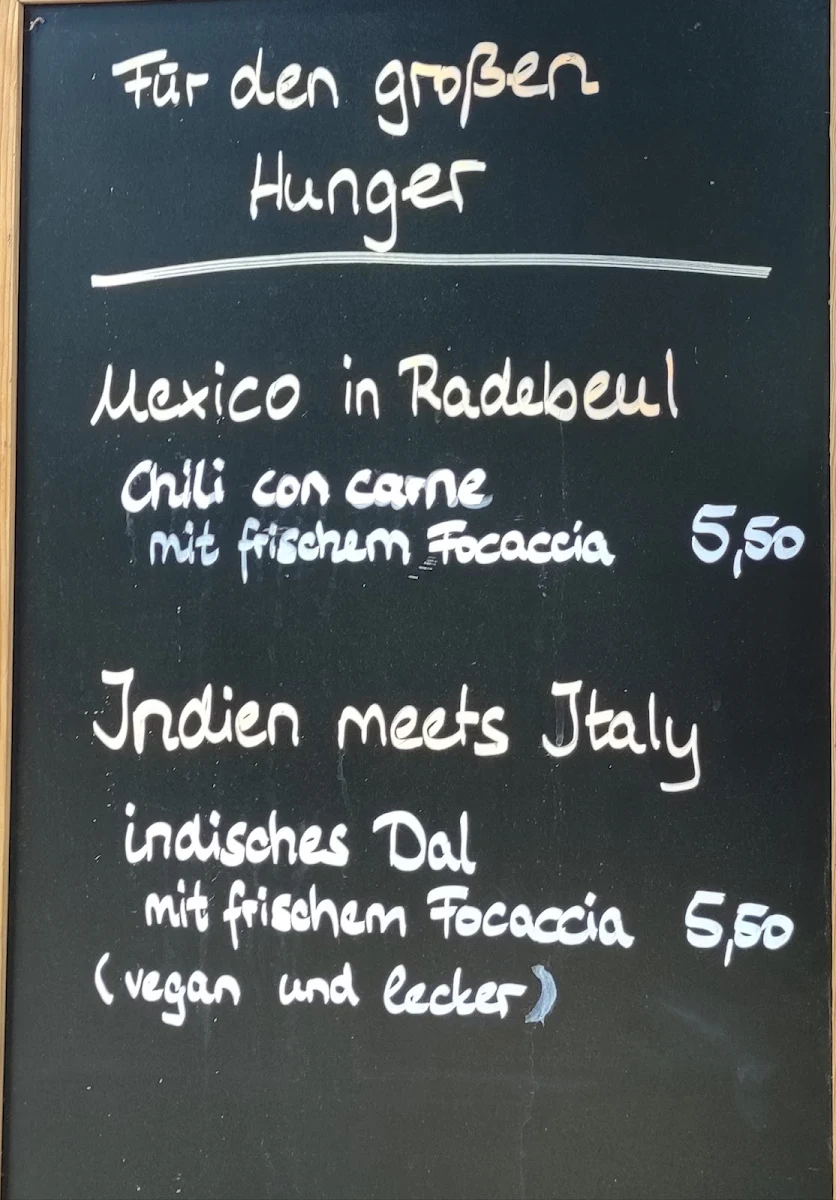 Für den großen
Hunger
Mexico in Radebeul
Chili con carne
mit frischem Focaccia 5,50
Indien meets Italy
indisches Dal
mit frischem Focaccia 5,50
(vegan und lecker)